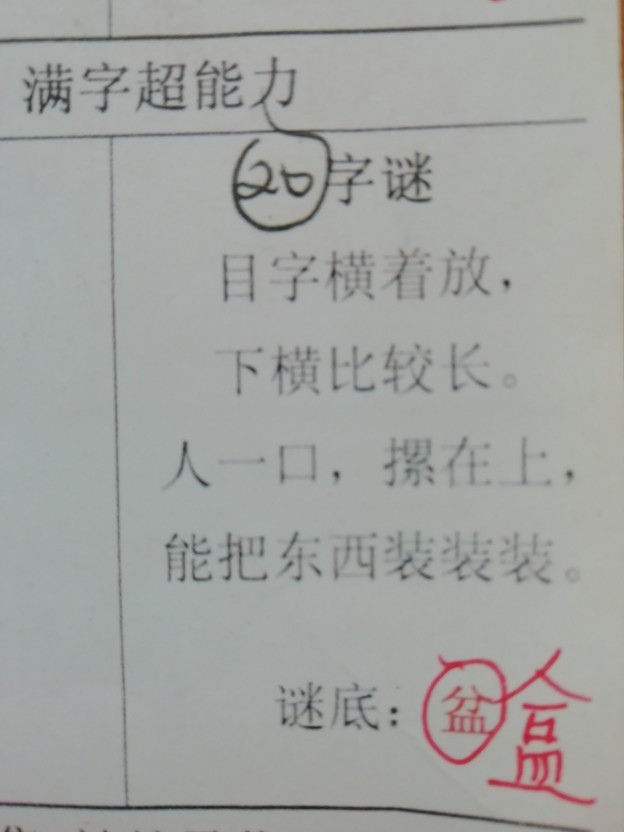 满字超能力
20字谜
目字横着放，
下横比较长。
人一口，摞在上，
能把东西装装装。
谜底：盆 盒